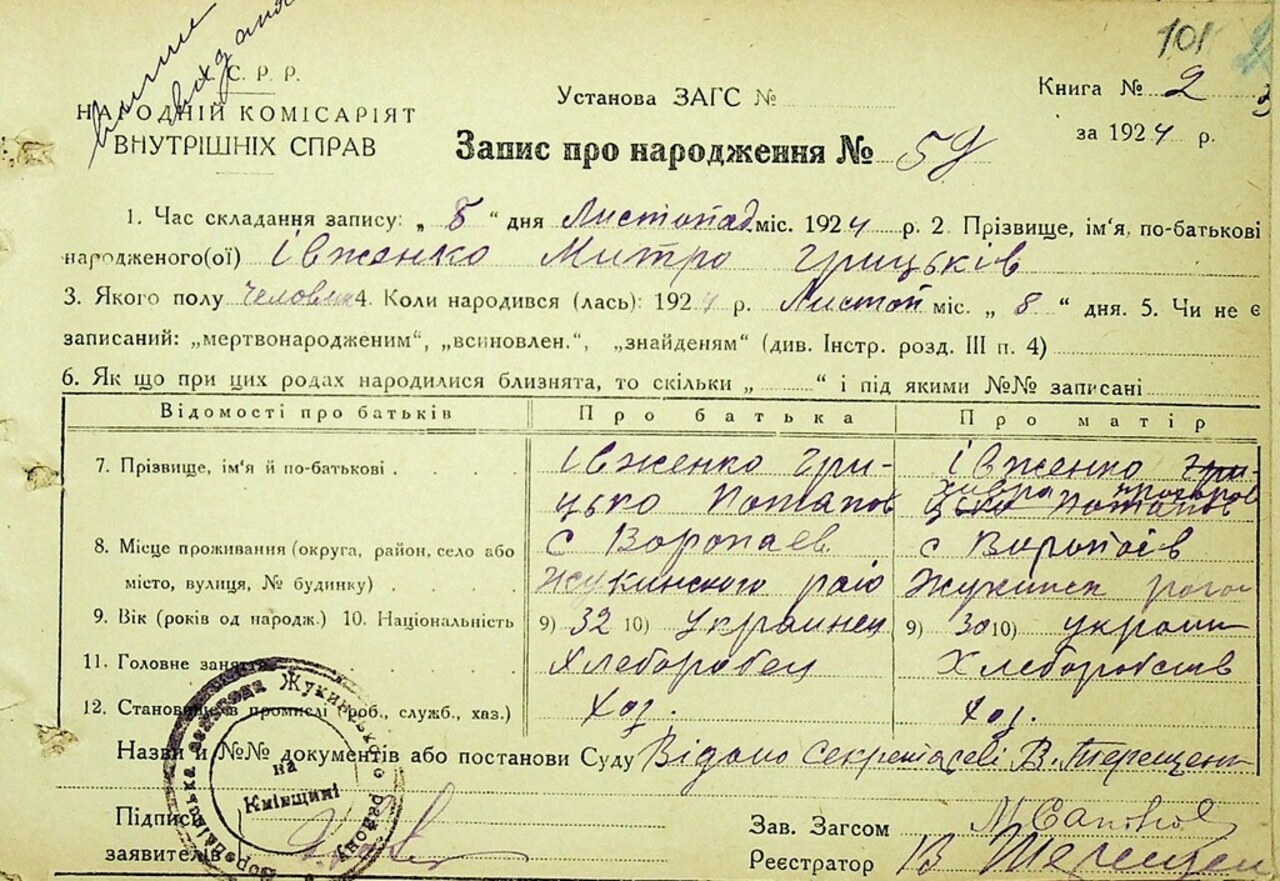 101
С. Р. Р.
НАРОДНІЙ КОМІСАРІЯТ
ВНУТРІШНІХ СПРАВ
Установа ЗАГС №
Книга № 2
за 1924 р.
Запис про народження № 59
1. Час складання запису: „ 8 “ дня Листопад міс. 1924 р. 2. Прізвище, ім'я, по-батькові
народженого(ої) Івженко Митро Грицьків
3. Якого полу 4. Коли народився (лась): 1924 р. Листоп міс. „ 8 “ дня. 5. Чи не є
записаний: „мертвонародженим“, „всиновлен.“, „знайденям“ (див. Інстр. розд. III п. 4)
6. Як що при цих родах народилися близнята, то скільки „ “ і під якими №№ записані
Відомості про батьків Про батька Про матір
7. Прізвище, ім'я й по-батькові . . . Івженко Гри- Івженко Гри-
цько Потапов цько Потапов
8. Місце проживання (округа, район, село або с Воропаев с Воропаїв
місто, вулиця, № будинку) . . . Жукинского раіо Жукинск
9. Вік (років од народж.) 10. Національність 9) 32 10) Украинец 9) 30 10) украин
11. Головне заняття Хлеборобец Хлеборобств
12. Становище в промислі (роб., служб., хаз.) Хоз. Хоз.
Назви й №№ документів або постанови Суду Відомо Секретареві В. Терещенк
на
Київщині
Жукинського району
Підписи
заявителів
Зав. Загсом
Реєстратор В Терещен